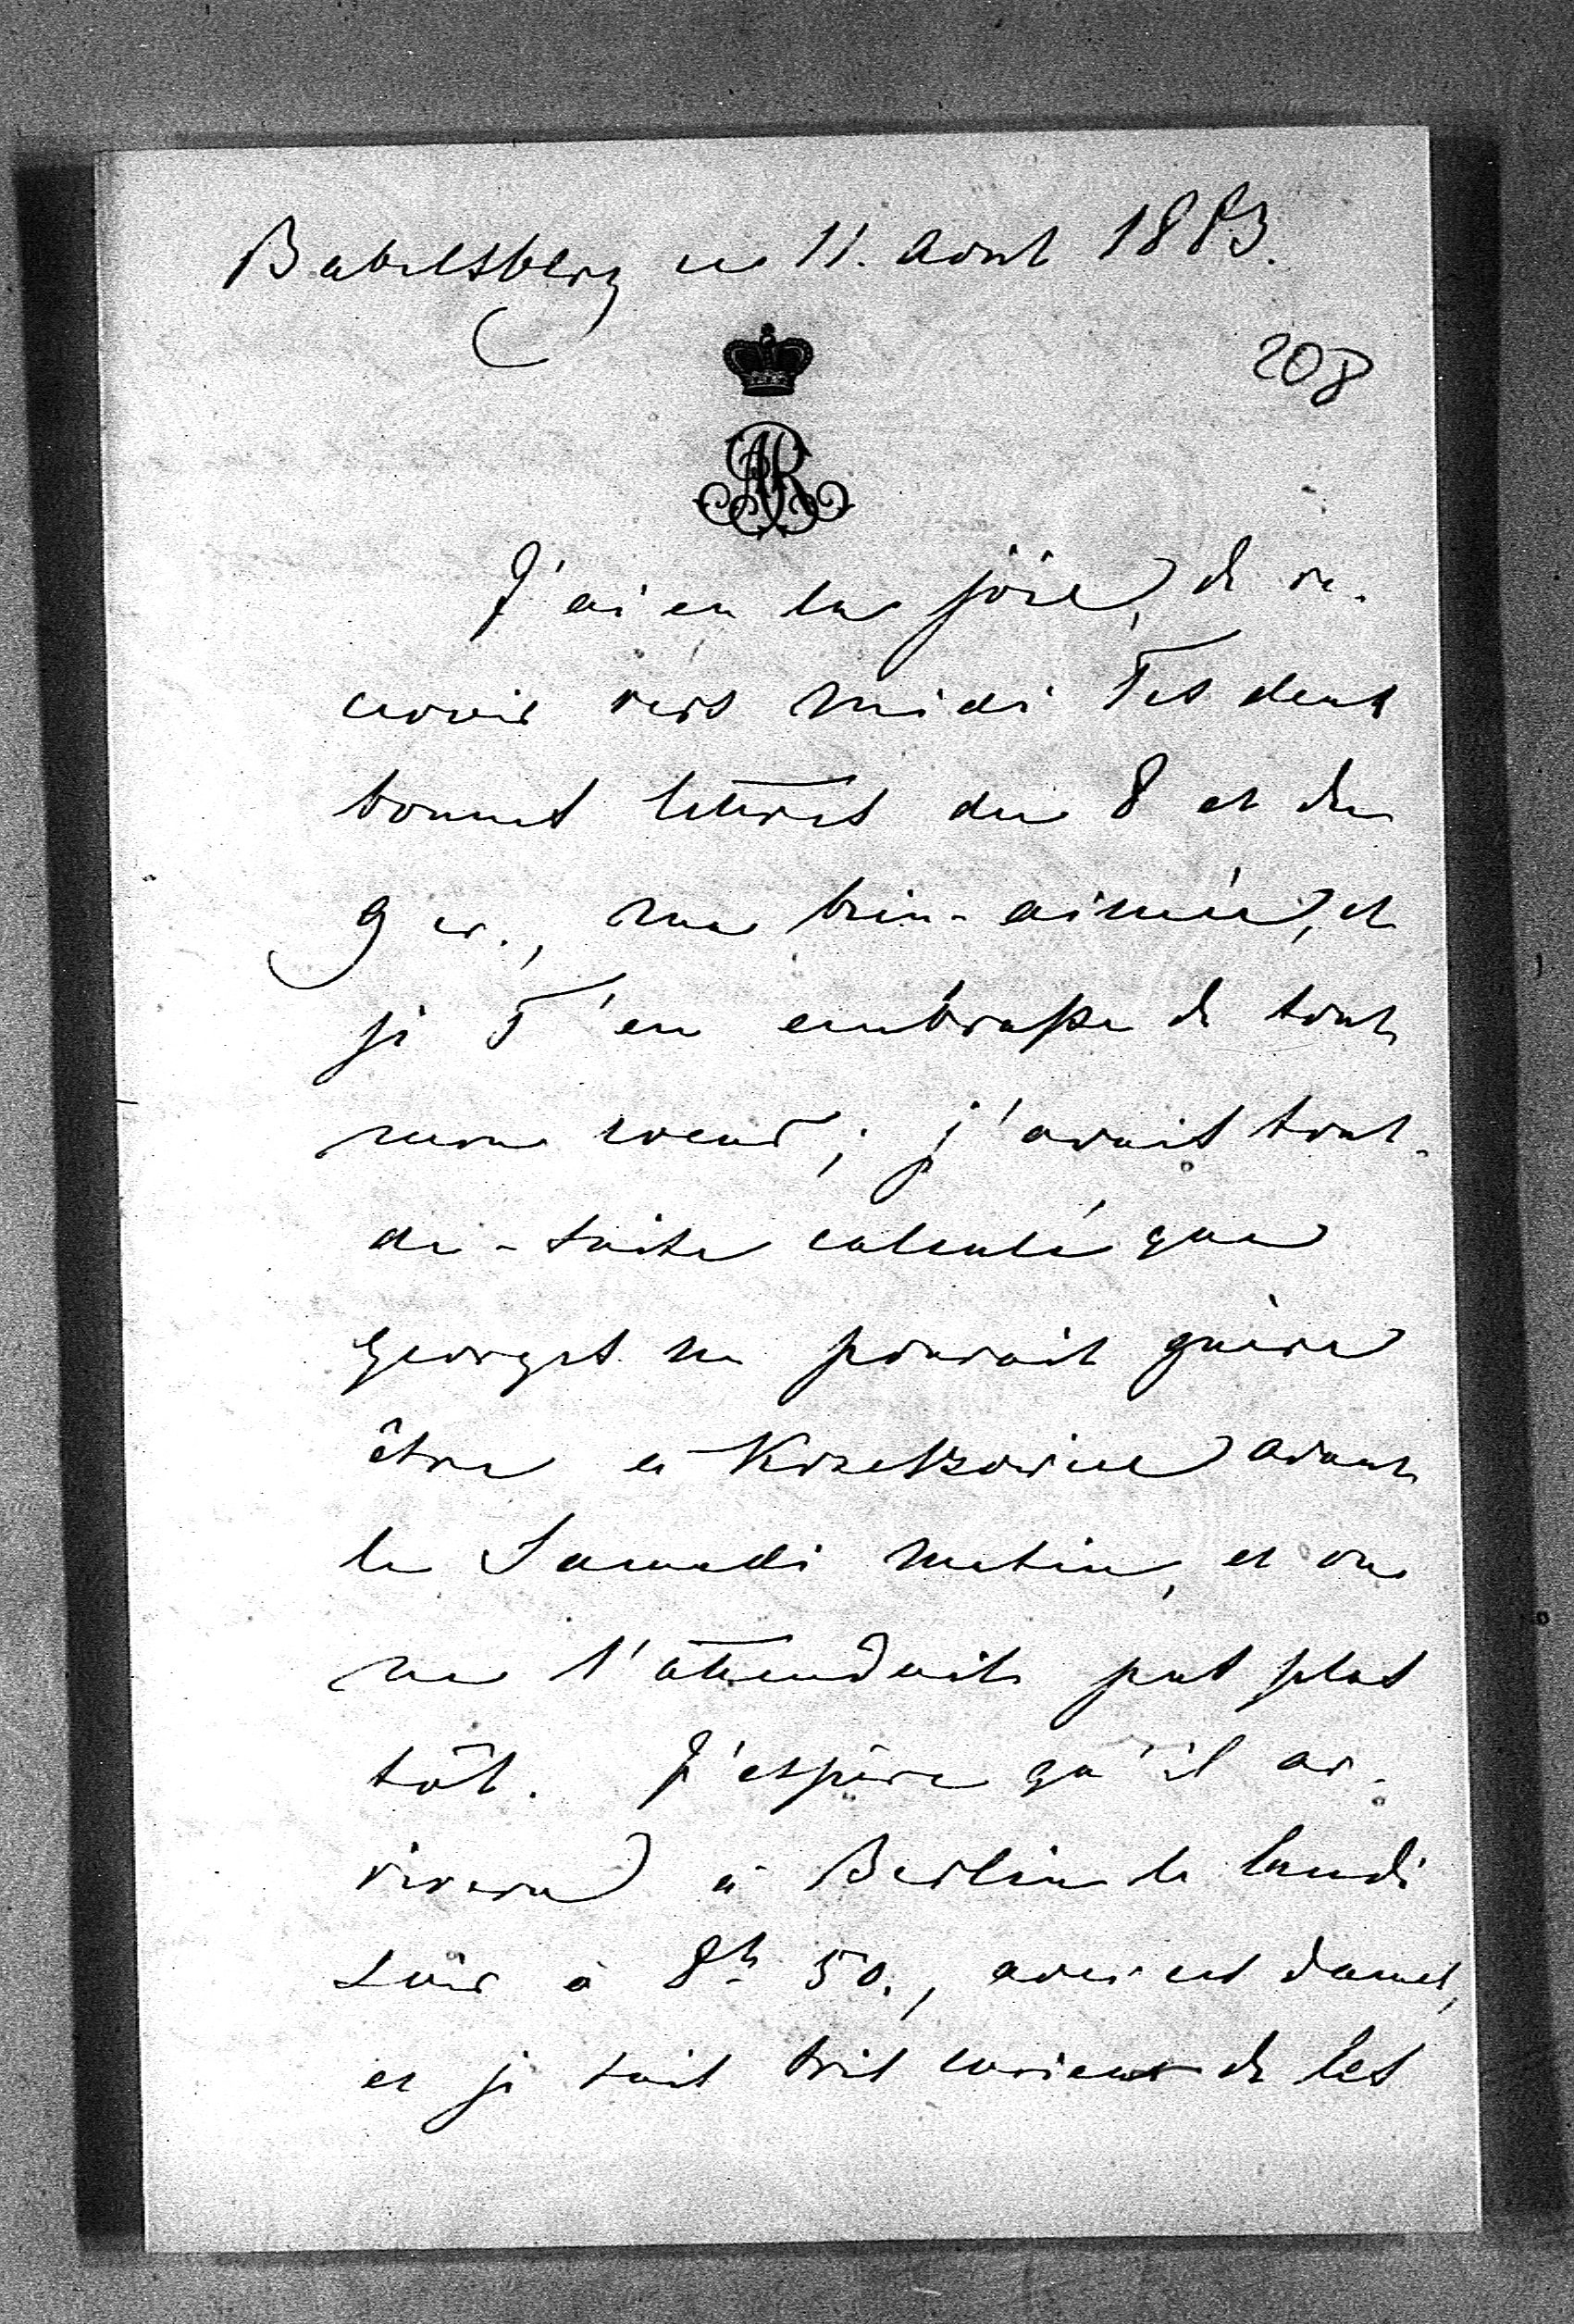 Babelsberg ce 11. Août 1883.
208
AR
J'ai eu la joie, de re-
cevoir vers midi Tes deux
bonnes lettres du 8 et du
9 cr., ma bien-aimée, et
je T'en embrasse de tout
mon coeur; j'avais tout-
de-suite calculé que
Georges ne pouvait guère
être à Krzeszowice avant
le Samedi matin, et on
ne l'attendait pas plus
tôt. J'espère qu'il ar-
rivera à Berlin le lundi
soir à 8h 50., avec ces dames,
et je suis très curieux de les